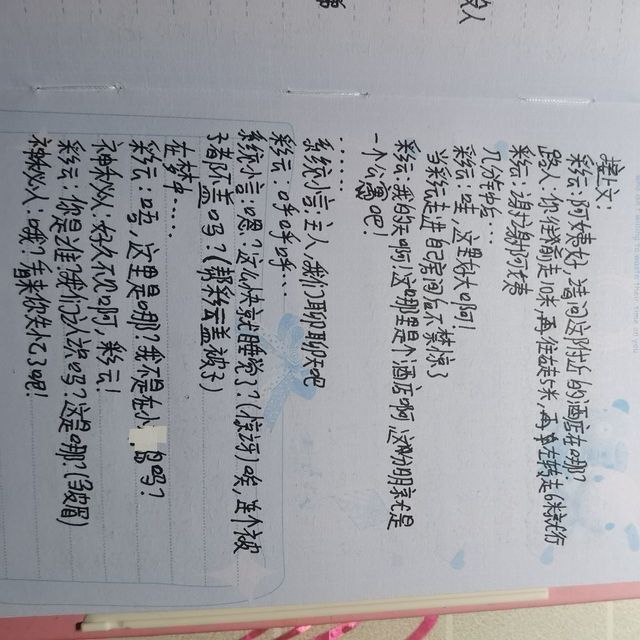 没人
接上文：
彩云：阿姨好，请问这附近的酒店在哪？
路人：你往前走10米，再往右走5米，再左转走6米就行
彩云：谢谢阿姨
几分钟后…
彩云：哇，这里好大啊！
当彩云走进自己房间后不禁惊了
彩云：我的天啊！这哪里是个酒店啊，这分明就是
一个公寓吧！
……
系统小言：主人，我们聊聊天吧
彩云：呼呼呼…
系统小言：嗯？这么快就睡着了？（惊讶）唉，连个被
子都不盖吗？（帮彩云盖被子）
在梦中……
彩云：唔，这里是哪？我不是在小 吗？
神秘人：好久不见啊，彩云！
彩云：你是谁？我们认识吗？这是哪？（皱眉）
神秘人：哦？看来你失忆了吧！